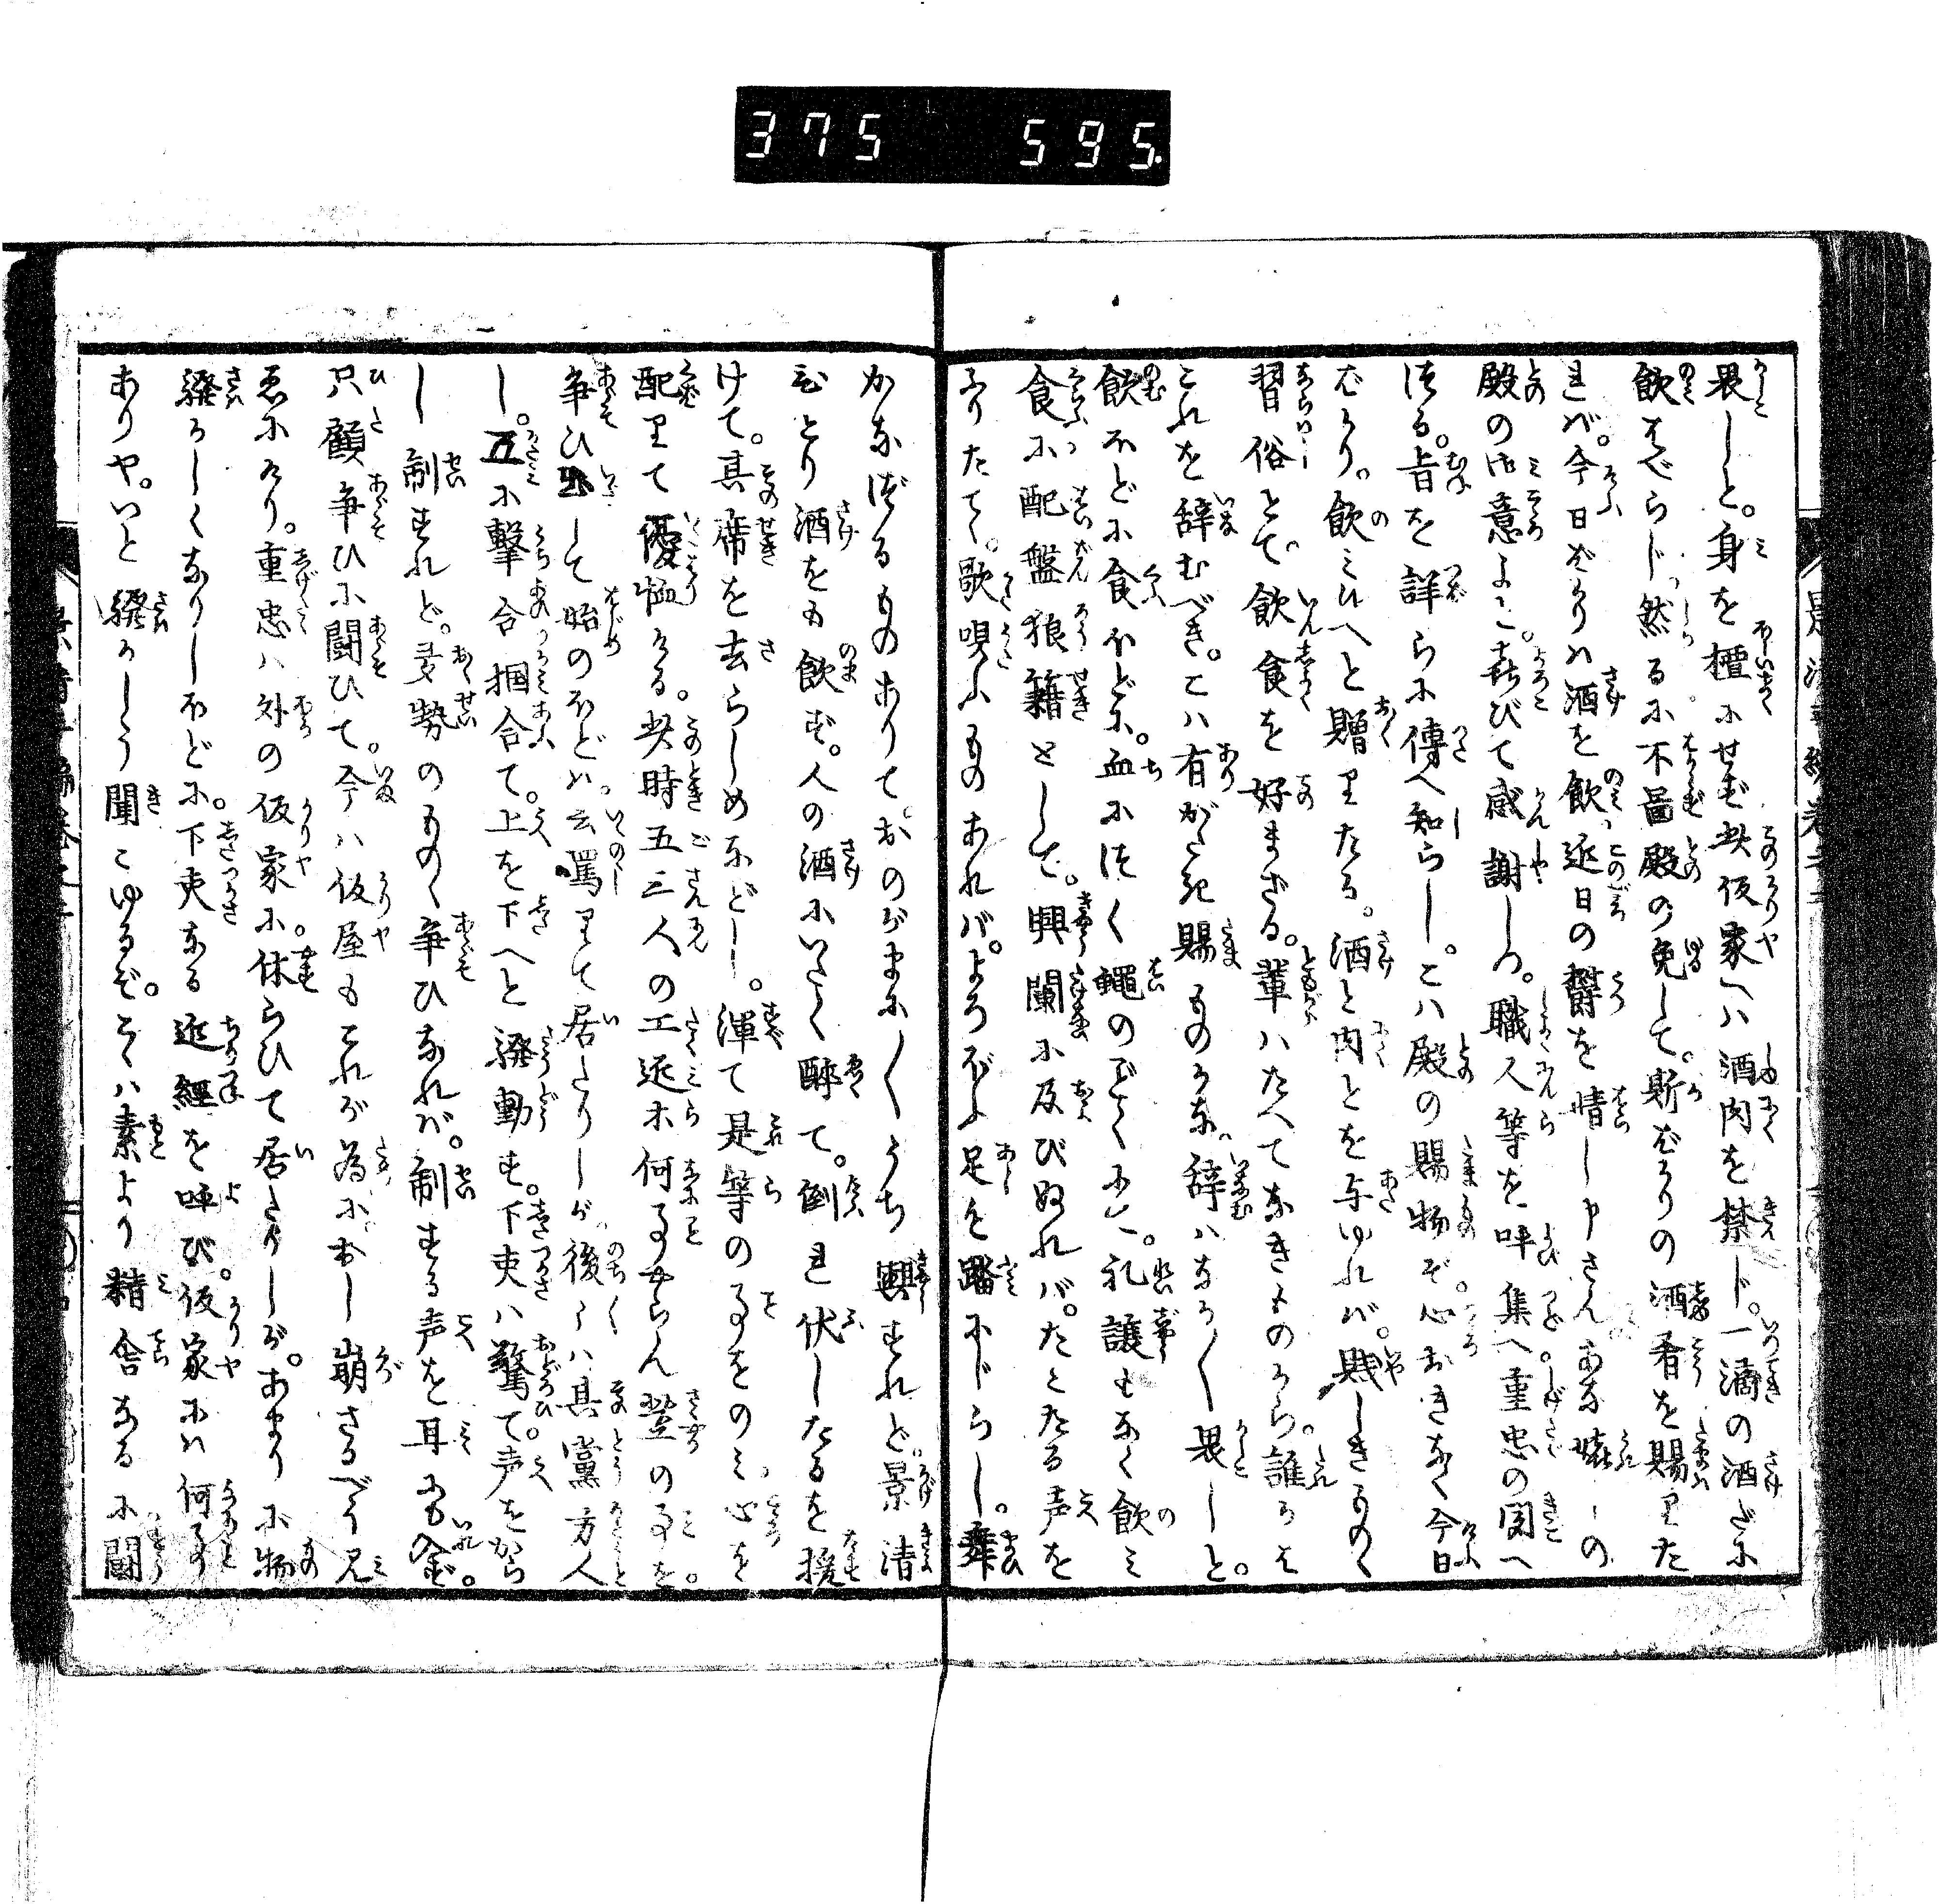 375 595
畏しと。身を擅にせず此仮家へハ酒肉を禁じ。一滴の酒だに
飲せざらじ。然るに不啚殿の免して。斯ばかりの酒肴を賜りた
れバ。今日ばかりハ酒を飲。近日の欝を晴し申さん。あな嬉しの
殿の御意よと。喜びて感謝しつ。職人等を呼集へ重忠の聞へ
つる。旨を詳らに傳へ知らし。こハ殿の賜物ぞ。心おきなく今日
ばかり。飲ミねへと贈りたる。酒と肉とを与ゆれバ。賎しきものゝ
習俗とて。飲食を好まざる。輩ハたへてなきものから。誰かは
これを辞むべき。こハ有がたき賜ものかな。辞ハなか〱畏しと。
飲ほどに食ほどに。血につく蠅のごとくにて。礼譲もなく飲ミ
食ふ。配盤狼籍として。興闌に及びぬれバ。たとたる声を
ふりたてゝ。歌唄ふものあれバ。よろぼふ足を踏にじらし。舞
かなづるものありて。おのがまに〱うち興ずれど。景清
ひとり酒をも飲ず。人の酒にいたく酔て。倒れ伏したるを挽
けて。其席を去らしめなどし。渾て是等の事をのミ。心を
配りて優悩ける。此時五三人の工匠等何事やらん翌の事を。
争ひ出して始のほどハ。云罵りて居たりしが。後々ハ其黨方人
し。互に撃合掴合て。上を下へと騒動す。下吏ハ驚て。声をから
し制すれど。多勢のものゝ争ひなれバ。制する声を耳にも入ず。
只顧争ひに闘ひて。今ハ仮屋もこれが為に。おし崩さるべう見
ゑにけり。重忠ハ外の仮家に。休らひて居たりしが。あまりに物
騒かしくなりしほどに。下吏なる近經を呼び。仮家にハ何事
ありや。いと騒かしう聞こゆるぞ。こゝハ素より精舎なるに闘